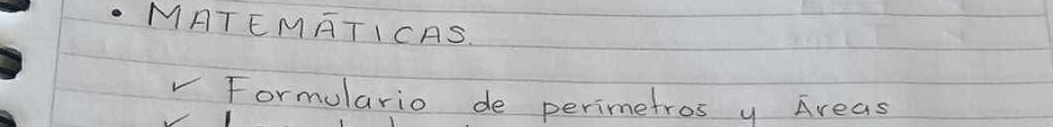 • MATEMÁTICAS.
✓ Formulario de perímetros y Áreas